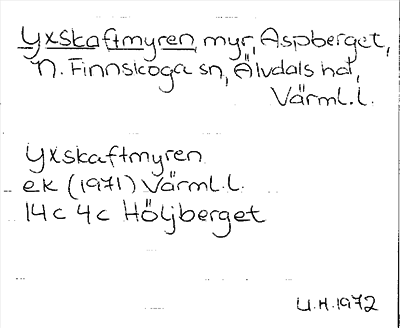 Yxskaftmyren, myr, Aspberget,
N. Finnskoga sn, Älvdals hd,
Värml.l.
Yxskaftmyren
ek (1971) Värml.l.
14c 4c Höljberget
U.H.1972